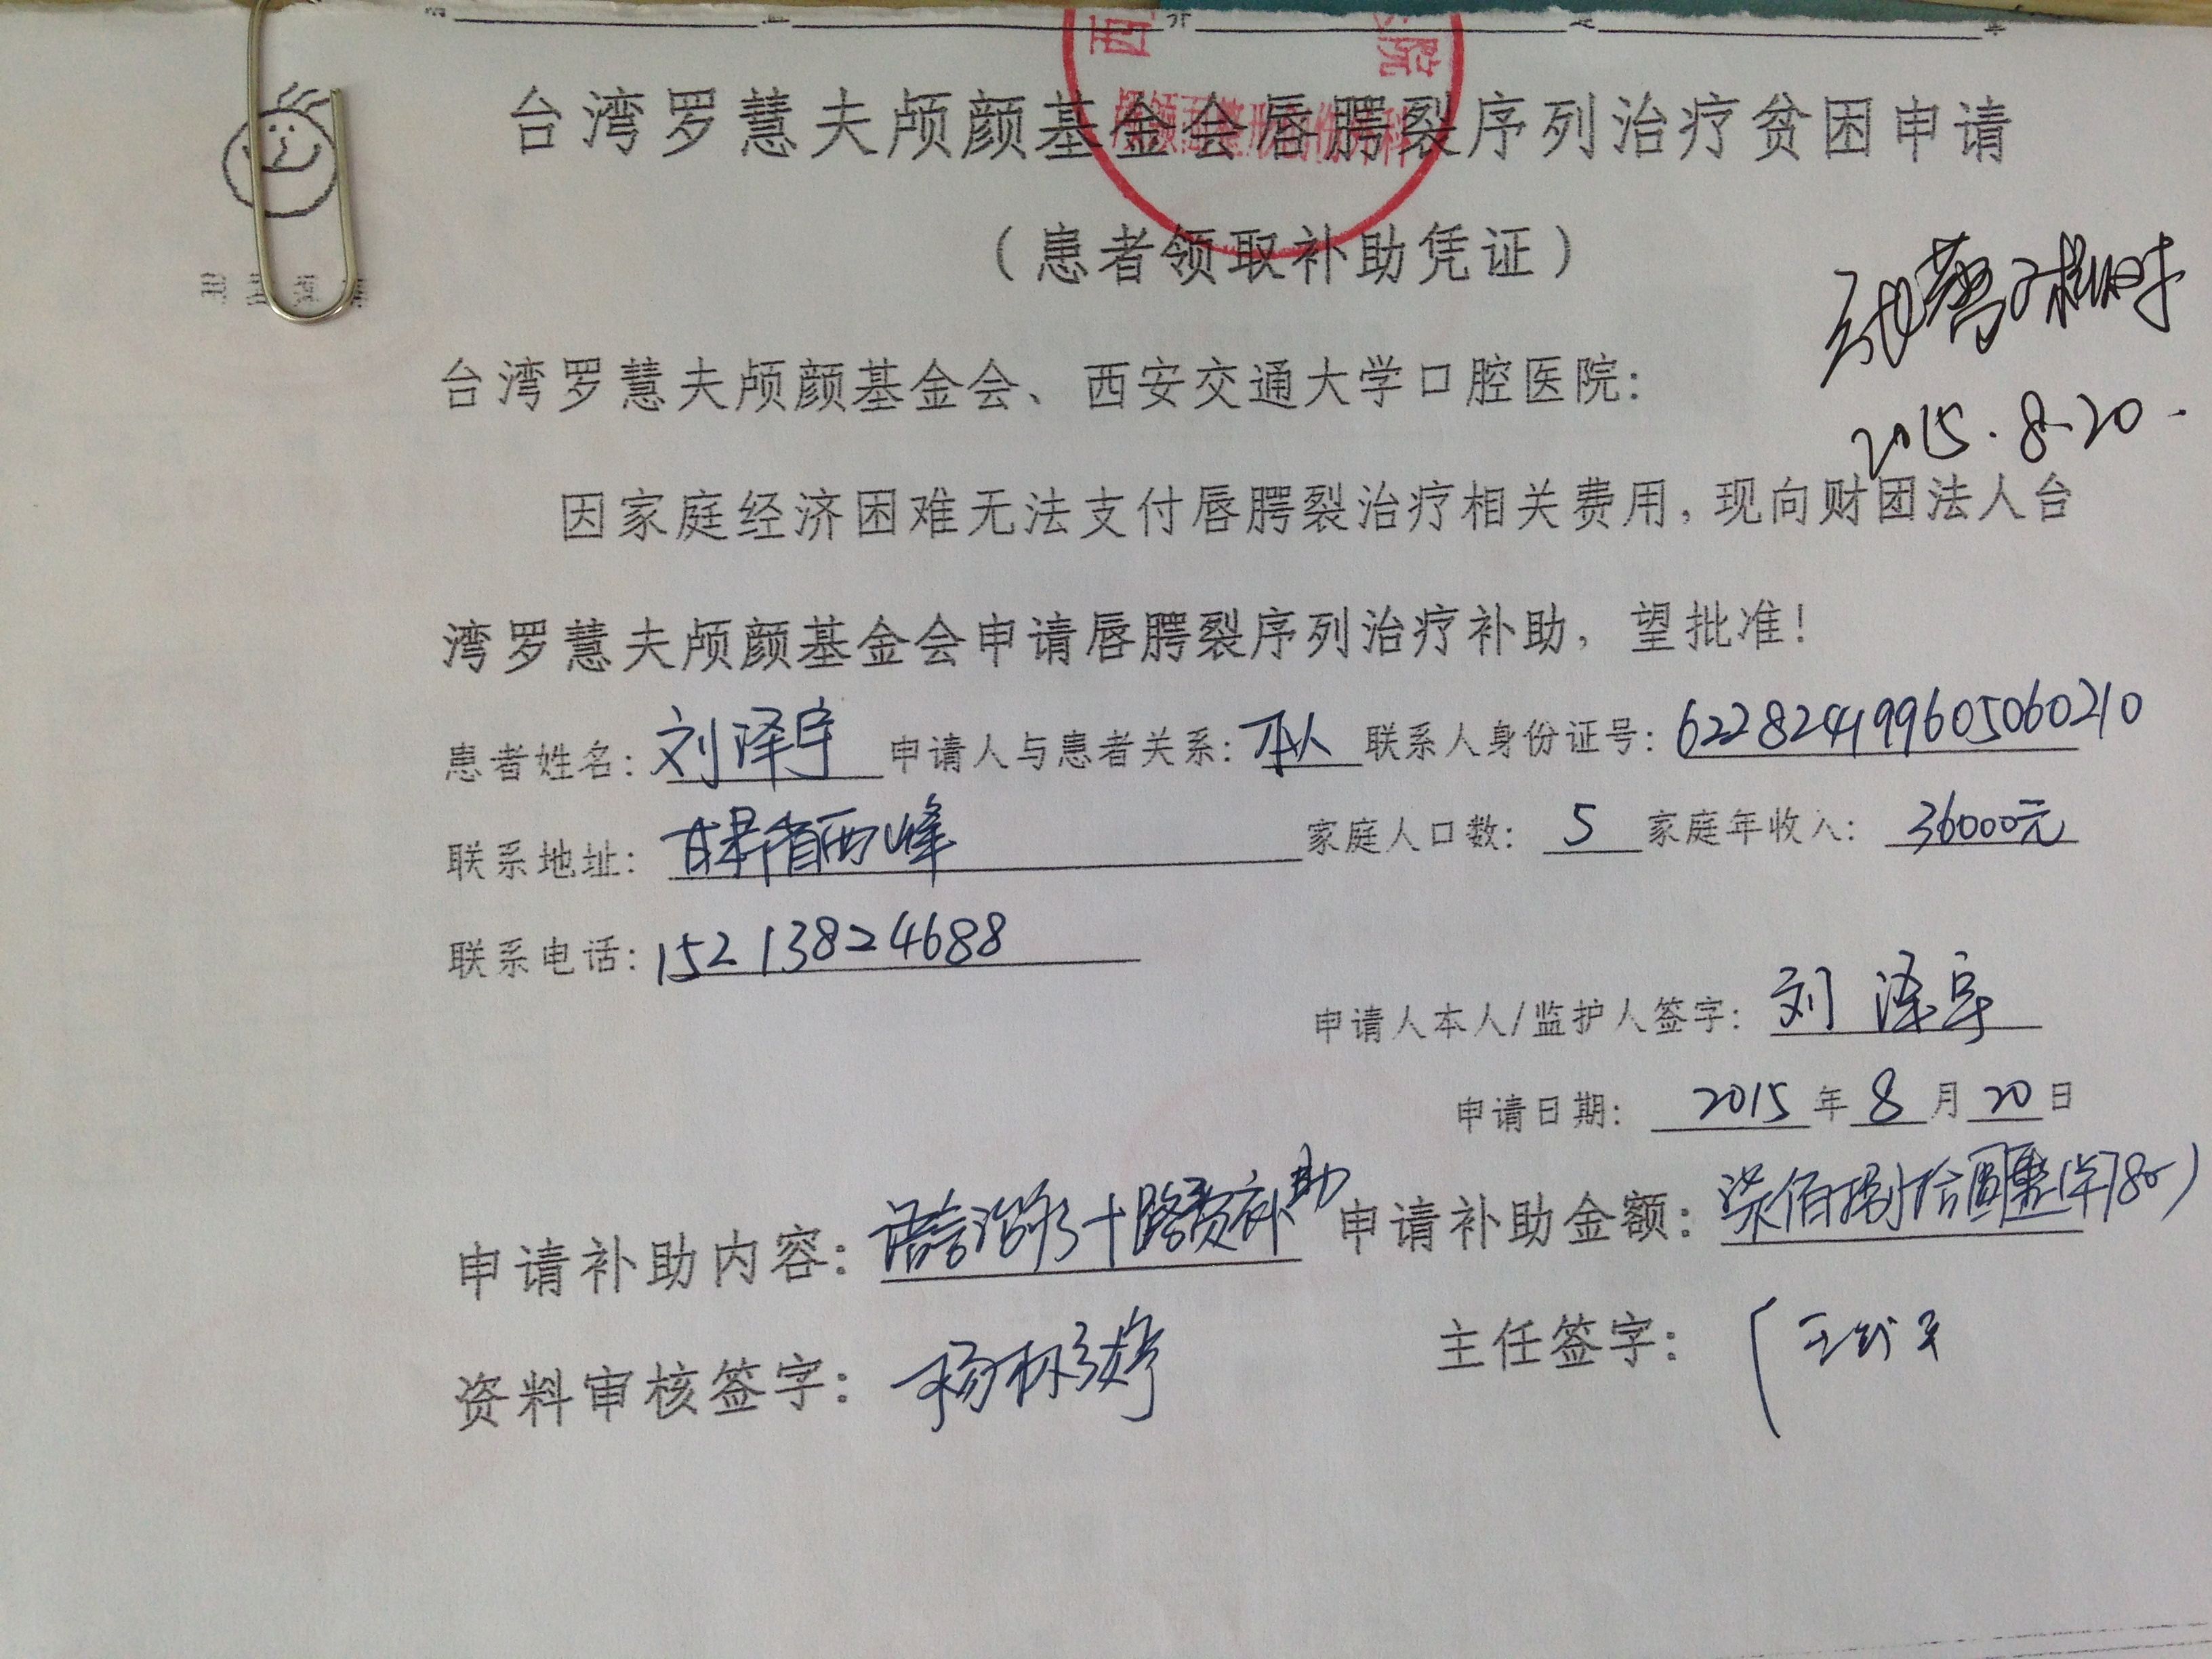 台湾罗慧夫颅颜基金会唇腭裂序列治疗贫困申请
（患者领取补助凭证）
2015.8.20.
台湾罗慧夫颅颜基金会、西安交通大学口腔医院：
因家庭经济困难无法支付唇腭裂治疗相关费用，现向财团法人台
湾罗慧夫颅颜基金会申请唇腭裂序列治疗补助，望批准！
患者姓名：刘泽宇 申请人与患者关系：本人 联系人身份证号：622824199605060210
联系地址：甘肃省西峰 家庭人口数：5 家庭年收入：36000元
联系电话：15213824688
申请人本人/监护人签字：刘泽宇
申请日期：2015年8月20日
申请补助内容：语言治疗+路费补助 申请补助金额：柒佰捌拾圆整(羊780)
资料审核签字：杨 主任签字：王